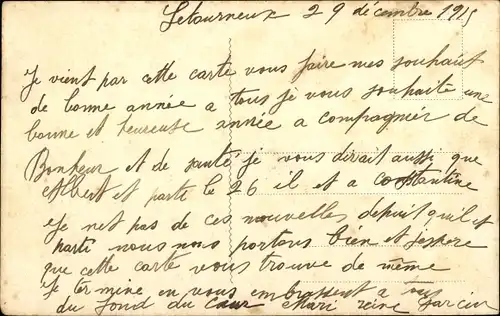 Letourneux 29 décembre 1915
Je vient par cette carte vous faire mes souhait
de bonne année a tous je vous souhaite une
bonne et heureuse année a compagniér de
Bonheur et de santé je vous dirait aussi que
Albert et parti le 26 il et a constantine
Je net pas de ces nouvelles depuit qu'il et
parti nous nous portons bien et j'espere
que cette carte vous trouve de même
Je termine en vous embrassent a tous
du fond du Cœur Marie reine Garcin